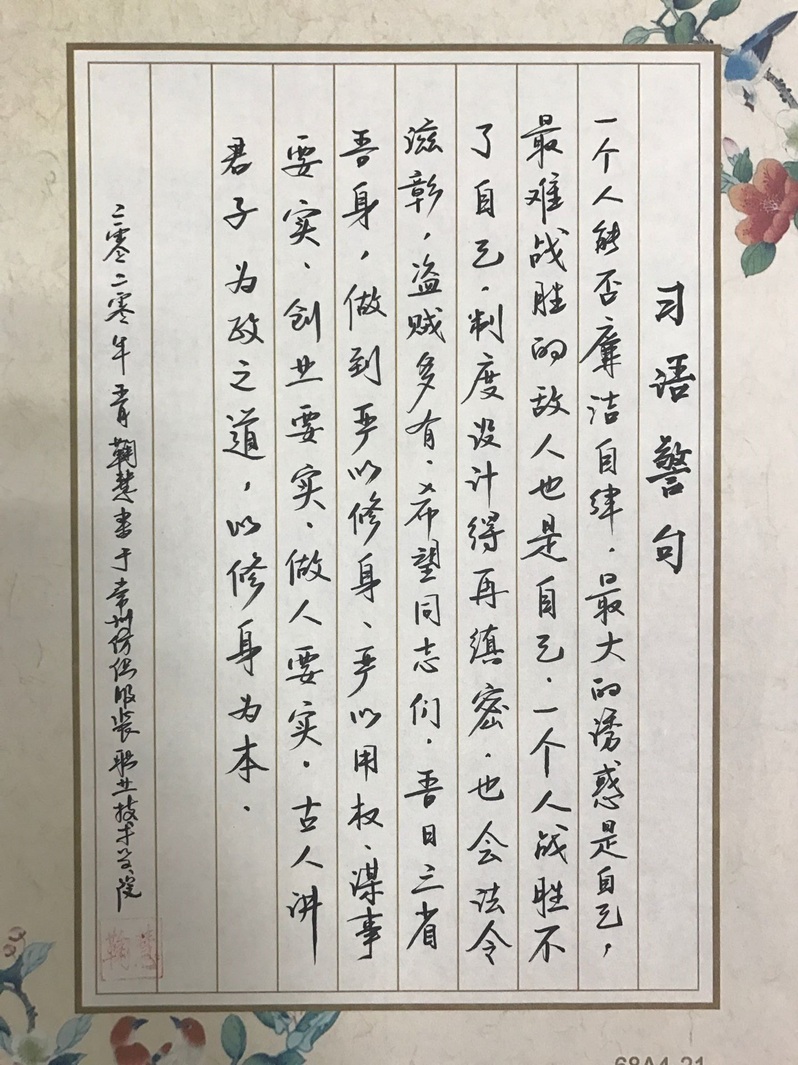 习语警句
一个人能否廉洁自律.最大的诱惑是自己,
最难战胜的敌人也是自己.一个人战胜不
了自己.制度设计得再缜密.也会法令
滋彰,盗贼多有.希望同志们.吾日三省
吾身,做到严以修身、严以用权、谋事
要实、创业要实、做人要实.古人讲
君子为政之道,以修身为本.
二零二零年五月鞠慧书于常州纺织服装职业技术学院
鞠慧
68A4-21